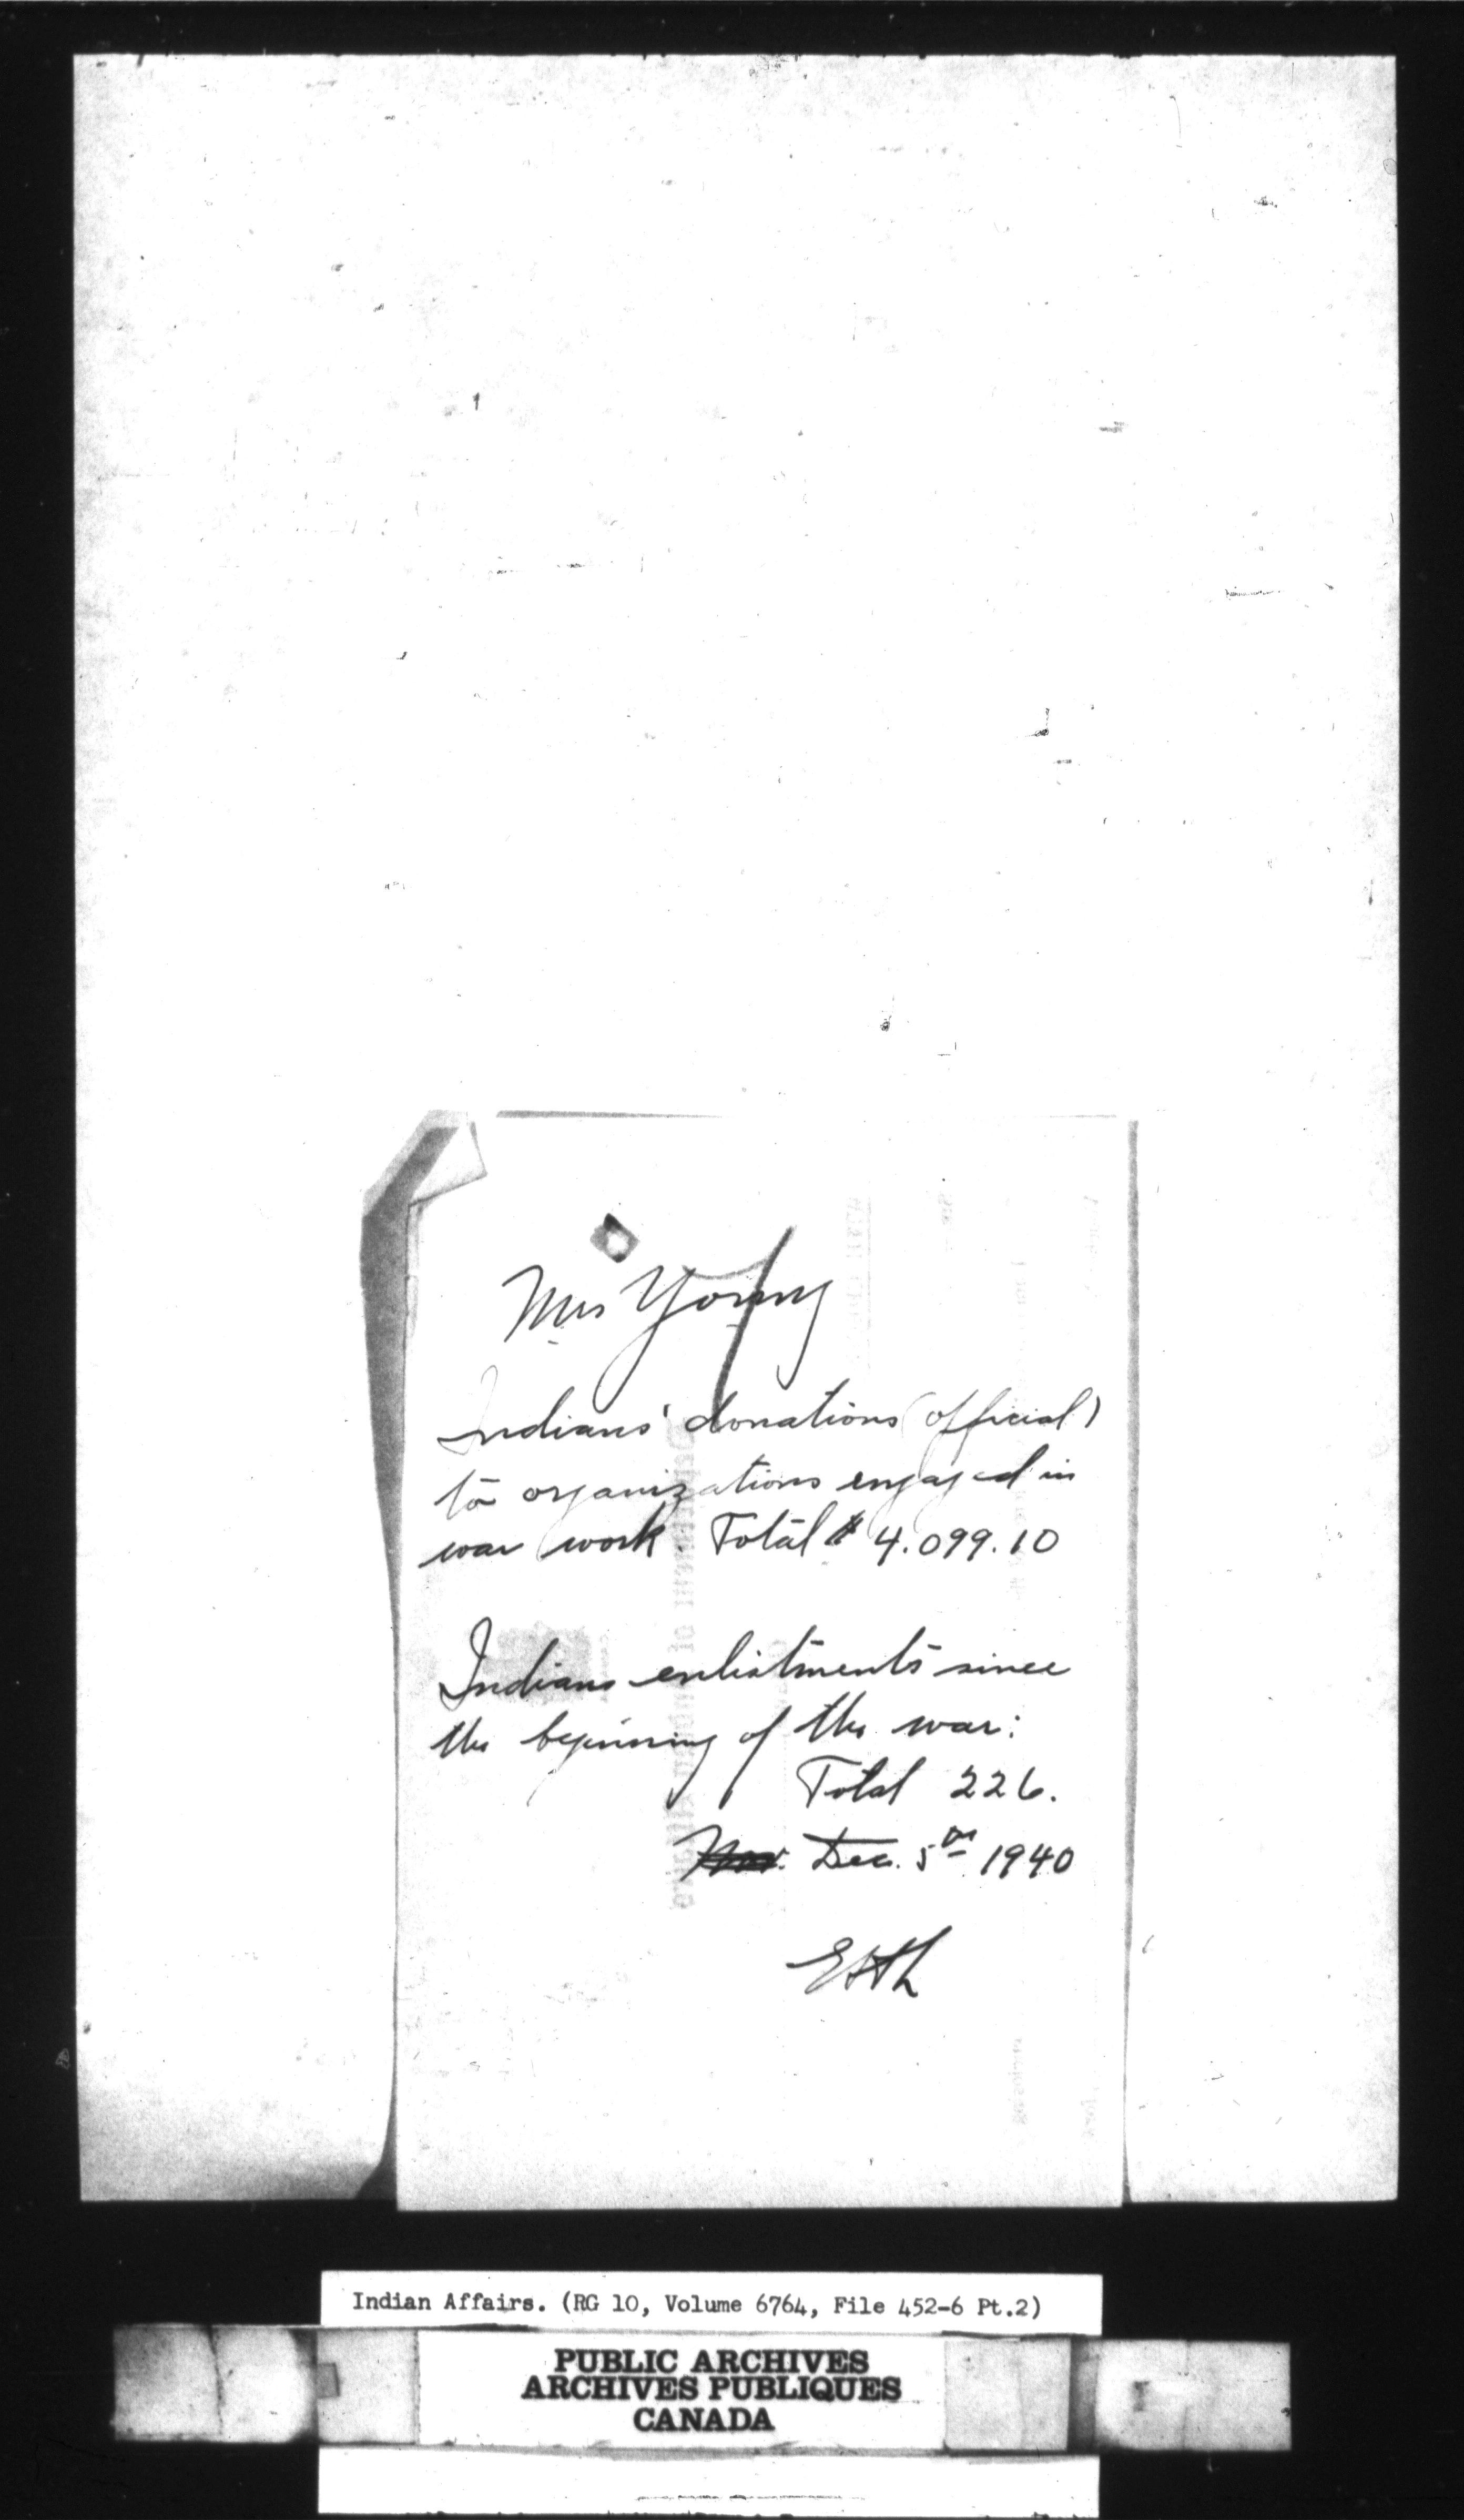 Mrs Young
Indians' donations (official)
to organizations engaged in
war work. Total $4.099.10
Indians enlistments since
the beginning of the war:
Total 226.
Nov. Dec. 5th 1940
Indian Affairs. (RG 10, Volume 6764, File 452-6 Pt.2)
PUBLIC ARCHIVES
ARCHIVES PUBLIQUES
CANADA